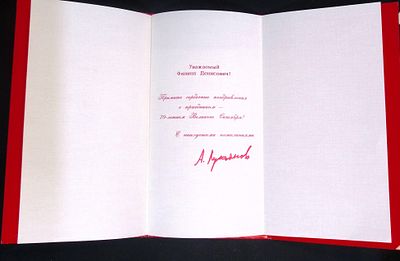 Уважаемый
Филипп Денисович!
Примите сердечные поздравления
с праздником —
70-летием Великого Октября!
С наилучшими пожеланиями
А. Лукьянов